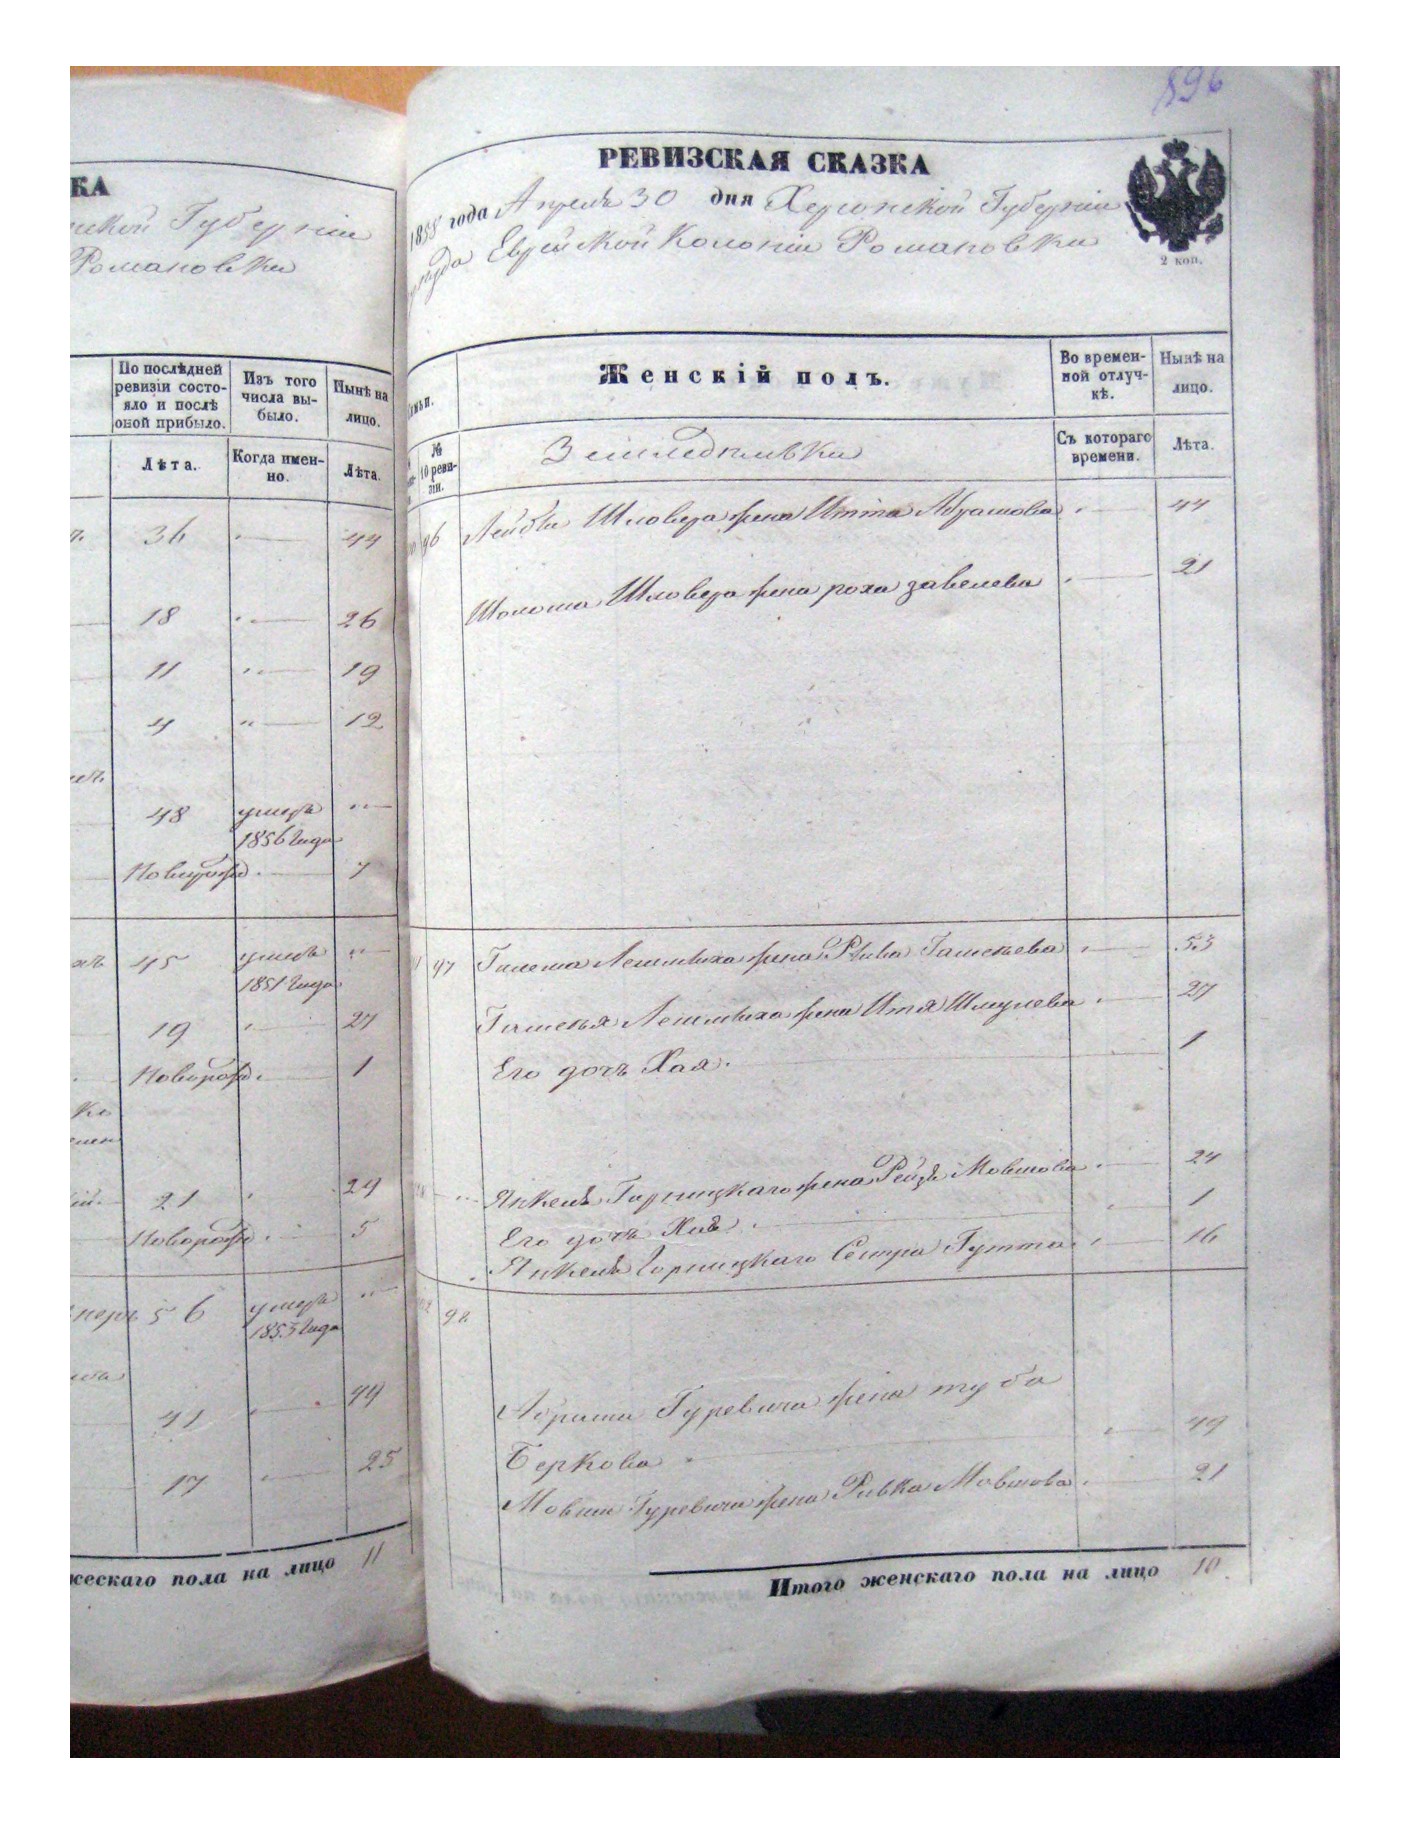 КА
Губерніи
Романовки
По послѣдней
ревизіи состо-
яло и послѣ
оной прибыло.
Изъ того
числа вы-
было.
Нынѣ на
лицо.
Лѣта.
Когда имен-
но.
Лѣта.
36 44
18 26
11 19
4 12
48 умеръ
1856 года
Новорожд. 7
45 умеръ
1851 года
19 27
Новорожд. 1
21 29
Новорожд. 5
56 умеръ
1853 года
41 49
17 25
жескаго пола на лицо 11
896
РЕВИЗСКАЯ СКАЗКА
1858 года Апрѣля 30 дня Херсонской Губерніи
уѣзда Еврейской Колоніи Романовки
2 коп.
Женскій полъ.
Во времен-
ной отлуч-
кѣ.
Нынѣ на
лицо.
№
10 реви-
зіи.
Земледѣлевки
Съ котораго
времени.
Лѣта.
96 Лейбы Шловера жена Итта Абрамова 44
Шолома Шловера жена роха завелева 21
97 жена Рыва 53
жена Итя Шмулева 27
Его дочь Хая 1
Янкеля Горницкаго жена Рейзя Мовшова 24
Его дочь 1
Янкеля Горницкаго Сестра Гутта 16
98
Абрама Гуревича жена туба
Беркова 49
Мовши Гуревича жена Ривка Мовшова 21
Итого женскаго пола на лицо 10